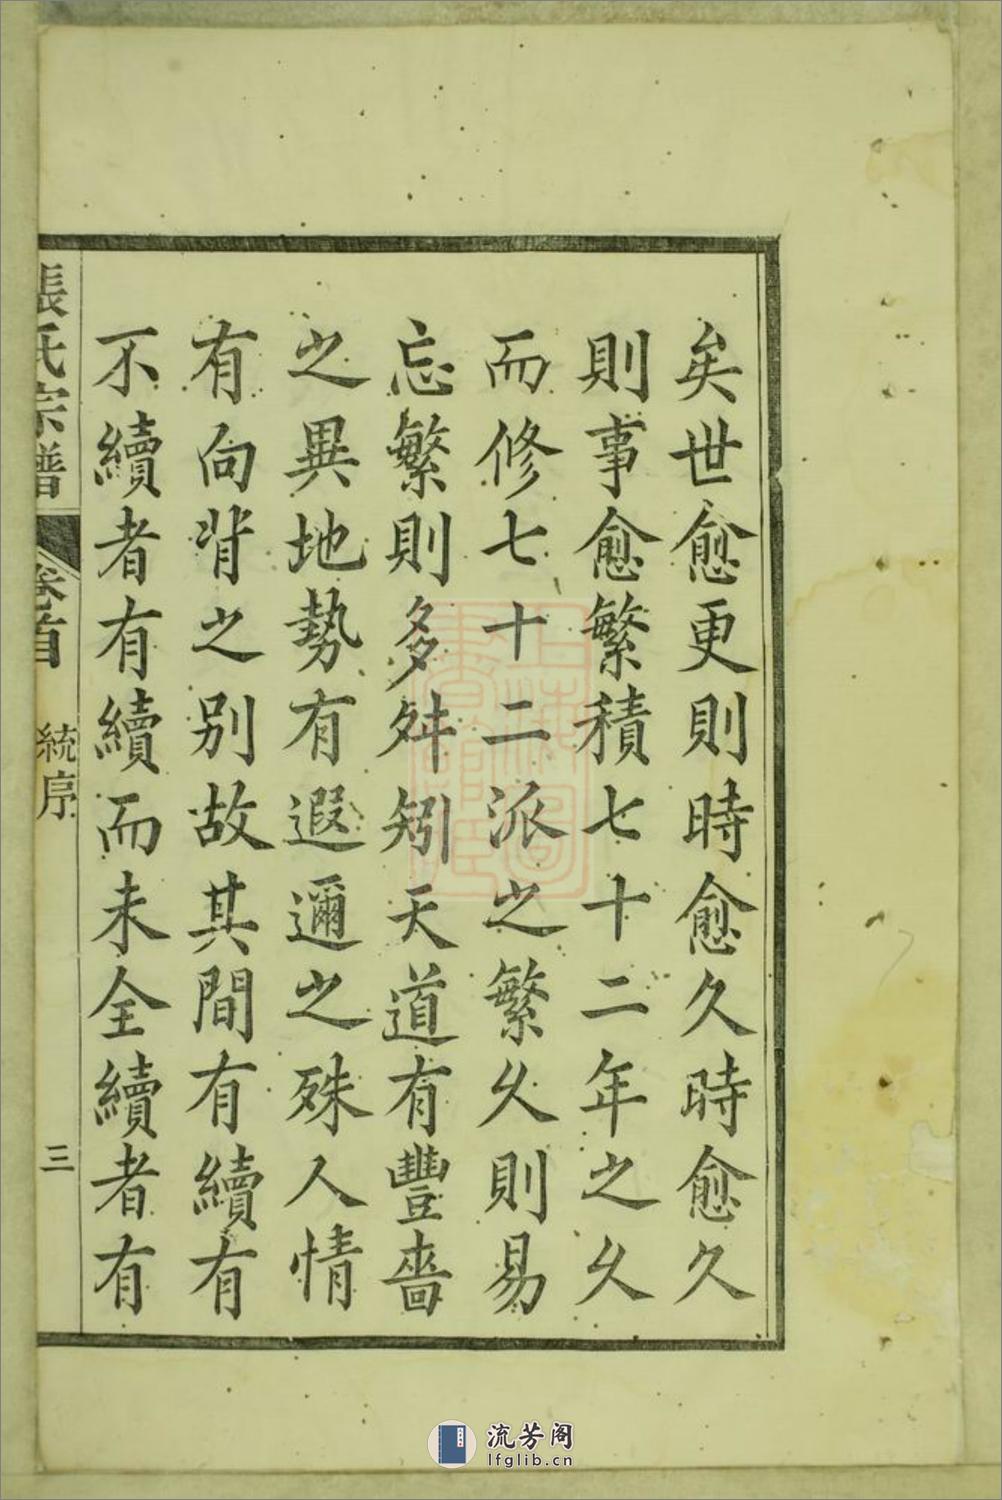 矣世愈更則時愈久時愈久
則事愈繁積七十二年之久
而修七十二派之繁久則易
忘繁則多舛矧天道有豐嗇
之異地勢有遐邇之殊人情
有向背之别故其間有續有
不續者有續而未全續者有
張氏宗譜
卷首
統序
三
流芳阁
lfglib.cn